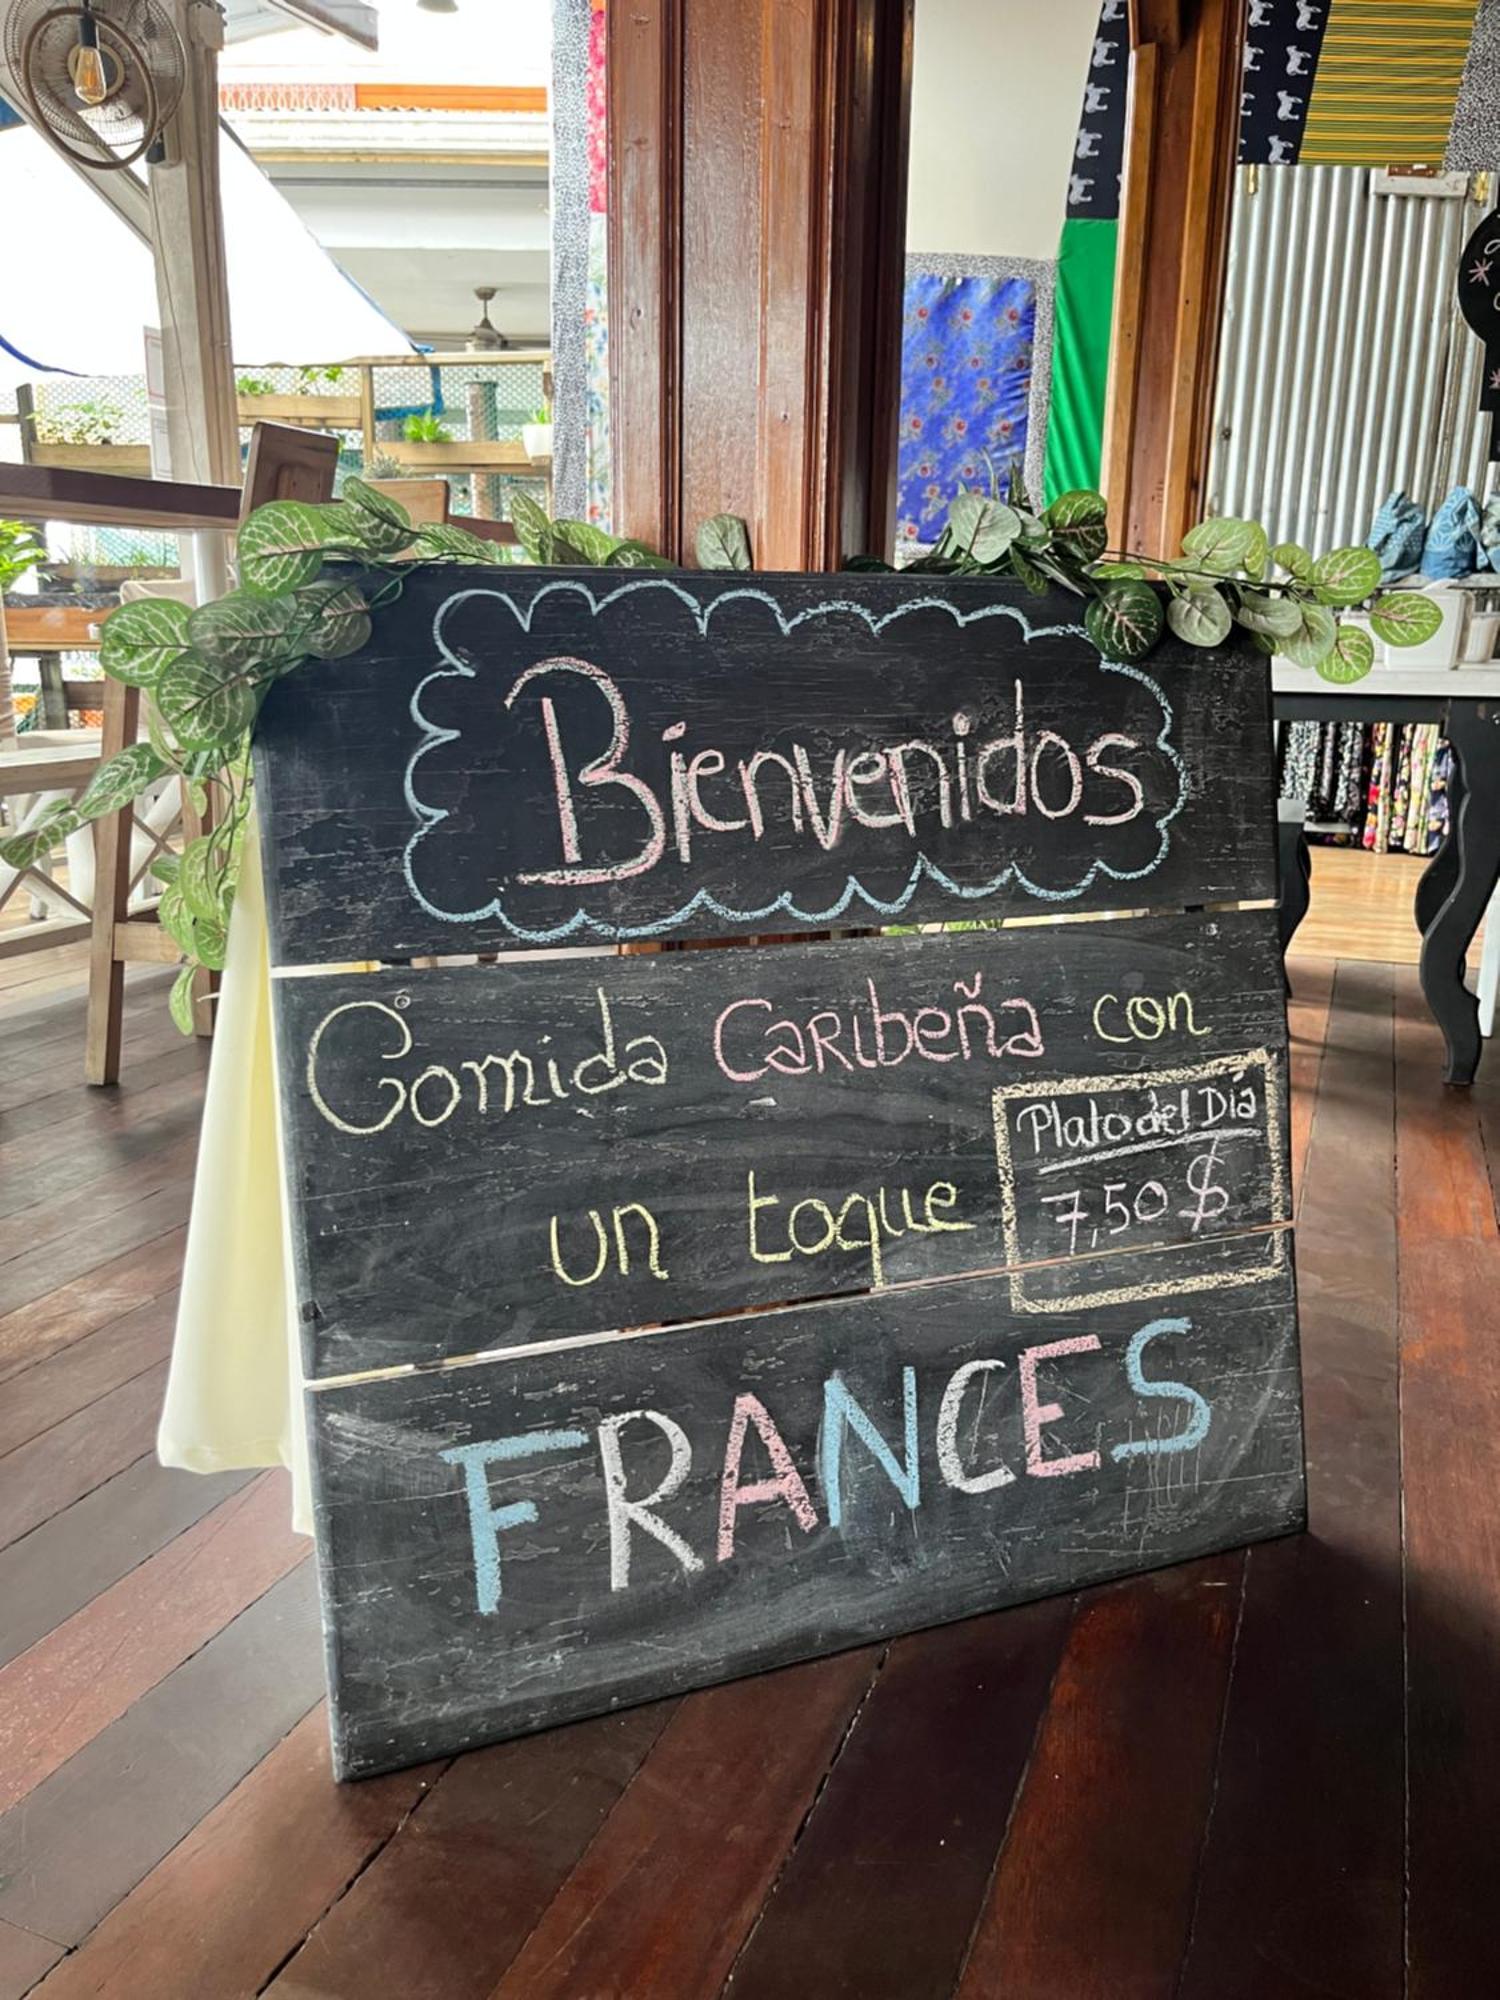 Bienvenidos
Comida Caribeña con
un toque
Plato del Día
7,50 $
FRANCES